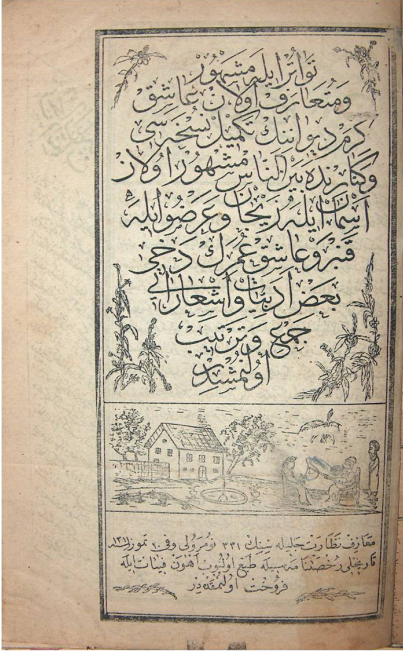 تواتر ايله مشهور
ومتعارف اولان عاشق
كرم ديواننك تكميل نسخه سى
وكنارنده بين الناس مشهور اولان
اسمان ايله زيجان وعرضو ايله
قنبر وعاشق عمرك دخى
بعض ادبيات واشعارى
جمع وترتيب
اولنمشدر
معارف نظارت جليله سنك ٣٣١ نومرولى وفى ١٠ تموز
تاريخلى رخصتنامه سيله طبع اولنوب اهون فيئات ايله
فروخت اولنمقده در